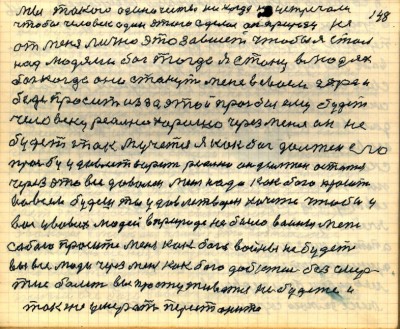 мы такого одиночества никогда не встречали 148
чтобы человек один этого сделал он природу не
от меня лично это зависит чтобы я стал
над людями бог тогда я стану в людях
бог когда они станут меня в своем здрав
беде просить из за этой просьбы ему будет
человеку реально хорошо через меня он не
будет так мучется я как бог должен его
просьбу удовлетворить реально он должен остатся
через это все доволен меня надо как бога просить
во всем будеш ты удовлетворен хочете чтобы у
вас у вовсих людей в природе не было войны меня
самого просите меня как бога войны не будет
вы все люди через меня как бога добетеся без смер-
тие болет вы простуживатся не будете и
так же умерать перестаните